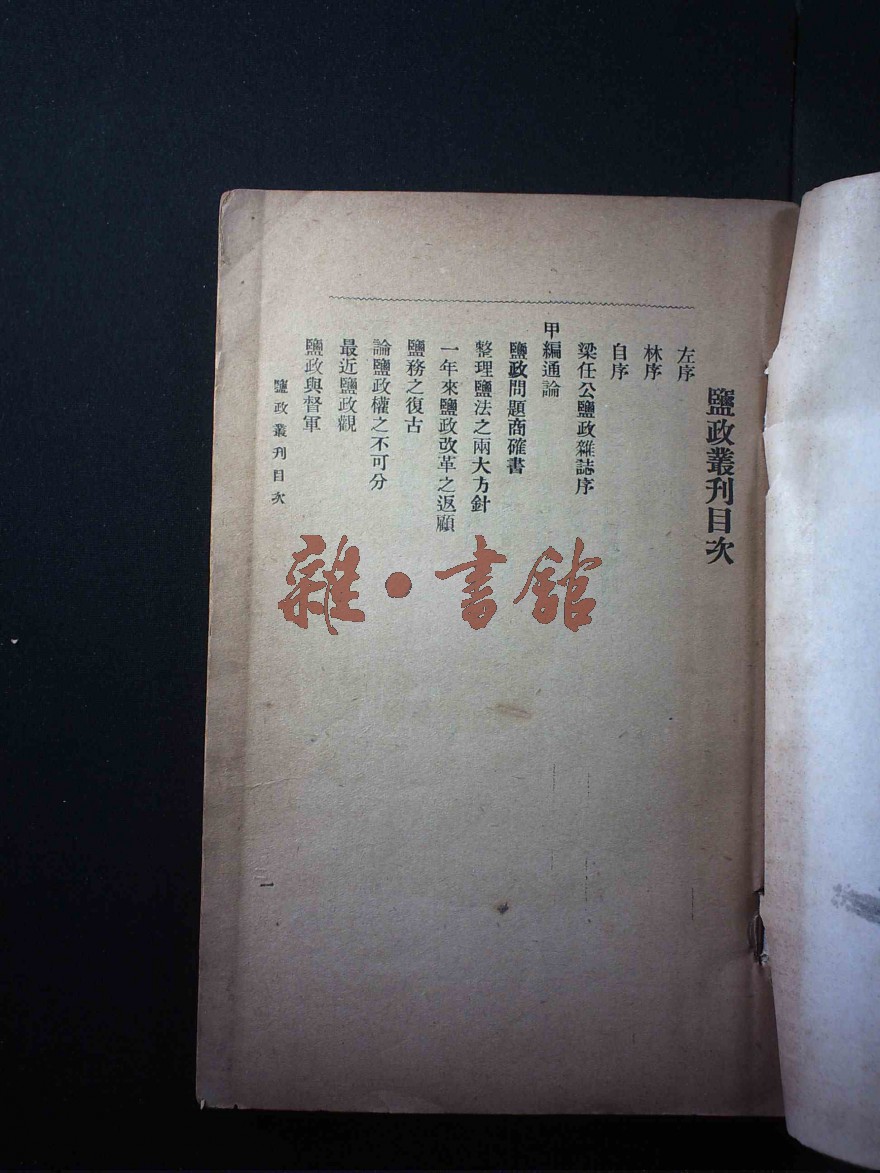 鹽政叢刊目次
左序
林序
自序
梁任公鹽政雜誌序
甲編通論
鹽政問題商確書
整理鹽法之兩大方針
一年來鹽政改革之返顧
鹽務之復古
論鹽政權之不可分
最近鹽政觀
鹽政與督軍
鹽政叢刊目次
一
雜·書館